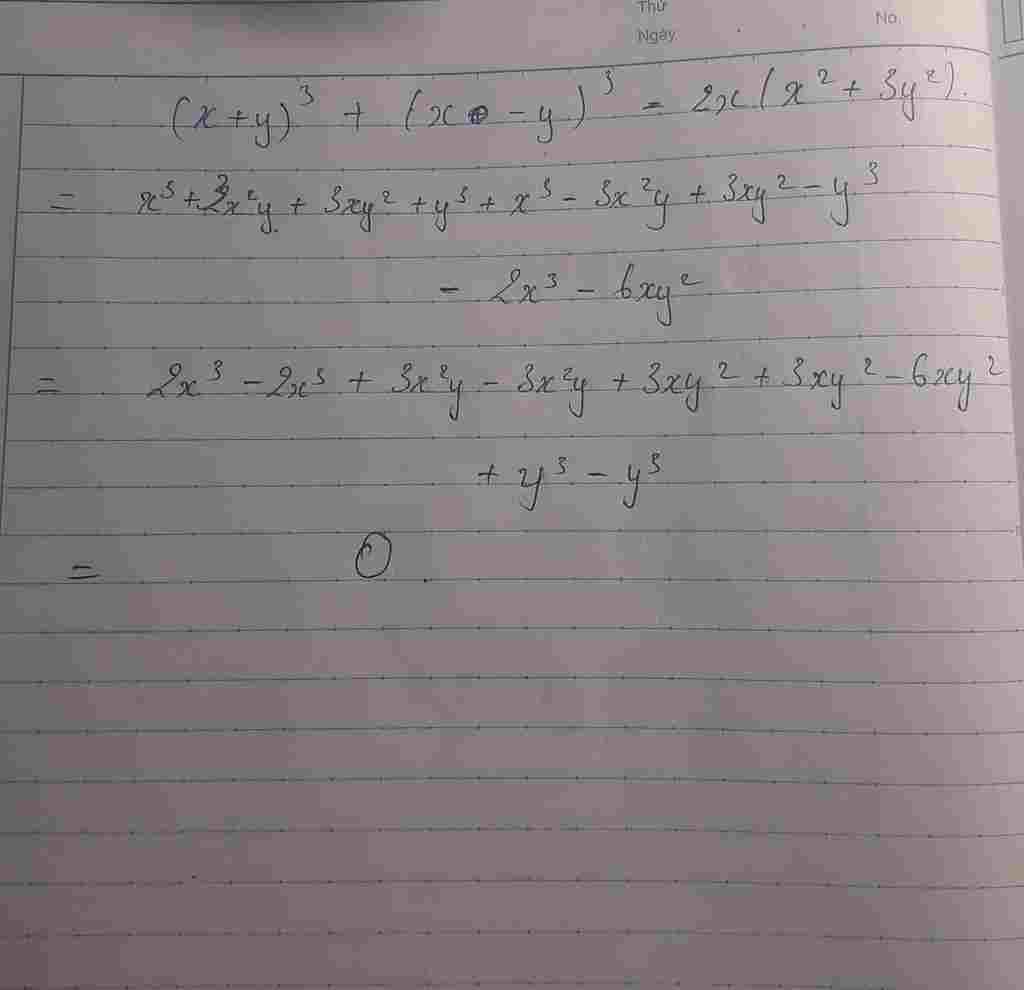 Thứ
No.
Ngày
(x+y)³ + (x - y)³ = 2x(x² + 3y²).
= x³ + 3x²y + 3xy² + y³ + x³ - 3x²y + 3xy² - y³
- 2x³ - 6xy²
= 2x³ - 2x³ + 3x²y - 3x²y + 3xy² + 3xy² - 6xy²
+ y³ - y³
= 0.